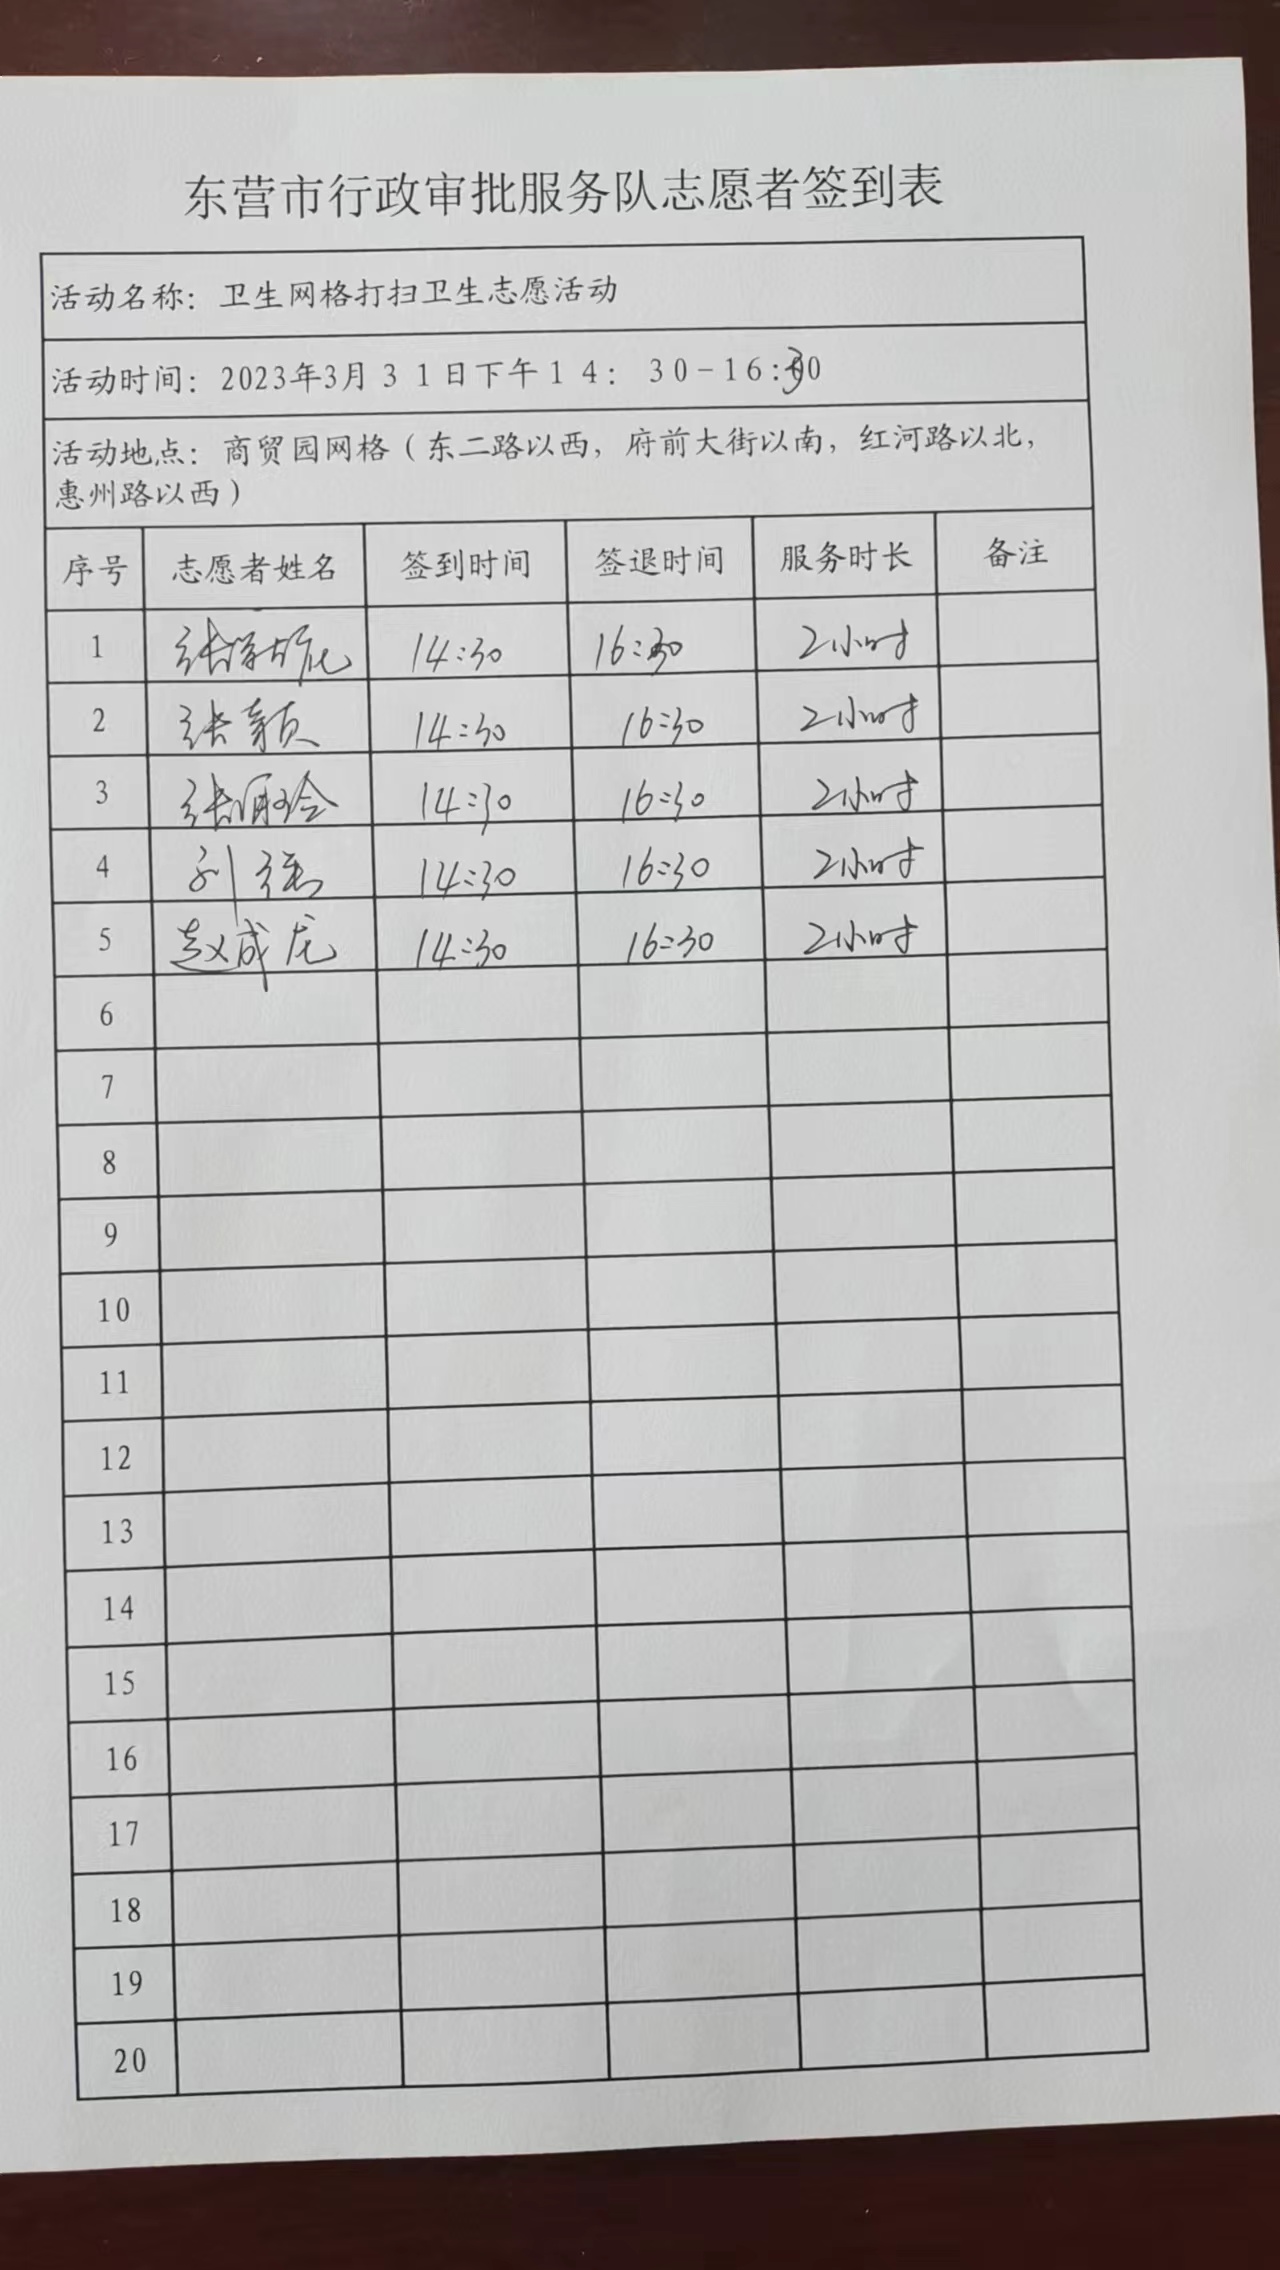 东营市行政审批服务队志愿者签到表
活动名称：卫生网格打扫卫生志愿活动
活动时间：2023年3月31日下午14：30-16:30
活动地点：商贸园网格（东二路以西，府前大街以南，红河路以北，
惠州路以西）
序号 志愿者姓名 签到时间 签退时间 服务时长 备注
1 张 14:30 16:30 2小时
2 张颖 14:30 16:30 2小时
3 张 14:30 16:30 2小时
4 刘强 14:30 16:30 2小时
5 赵成龙 14:30 16:30 2小时
6
7
8
9
10
11
12
13
14
15
16
17
18
19
20